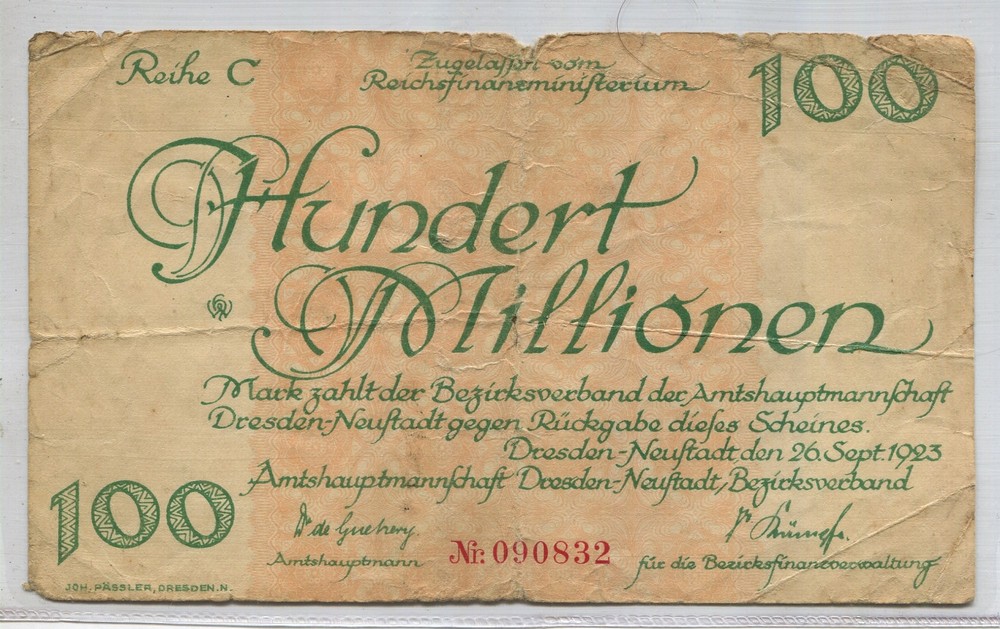 Reihe C
Zugelassen vom
Reichsfinanzministerium
100
Hundert
Millionen
Mark zahlt der Bezirksverband der Amtshauptmannschaft
Dresden-Neustadt gegen Rückgabe dieses Scheines.
Dresden-Neustadt den 26. Sept. 1923
Amtshauptmannschaft Dresden-Neustadt, Bezirksverband
100
Amtshauptmann
Nr. 090832
für die Bezirksfinanzverwaltung
JOH. PÄSSLER, DRESDEN.N.